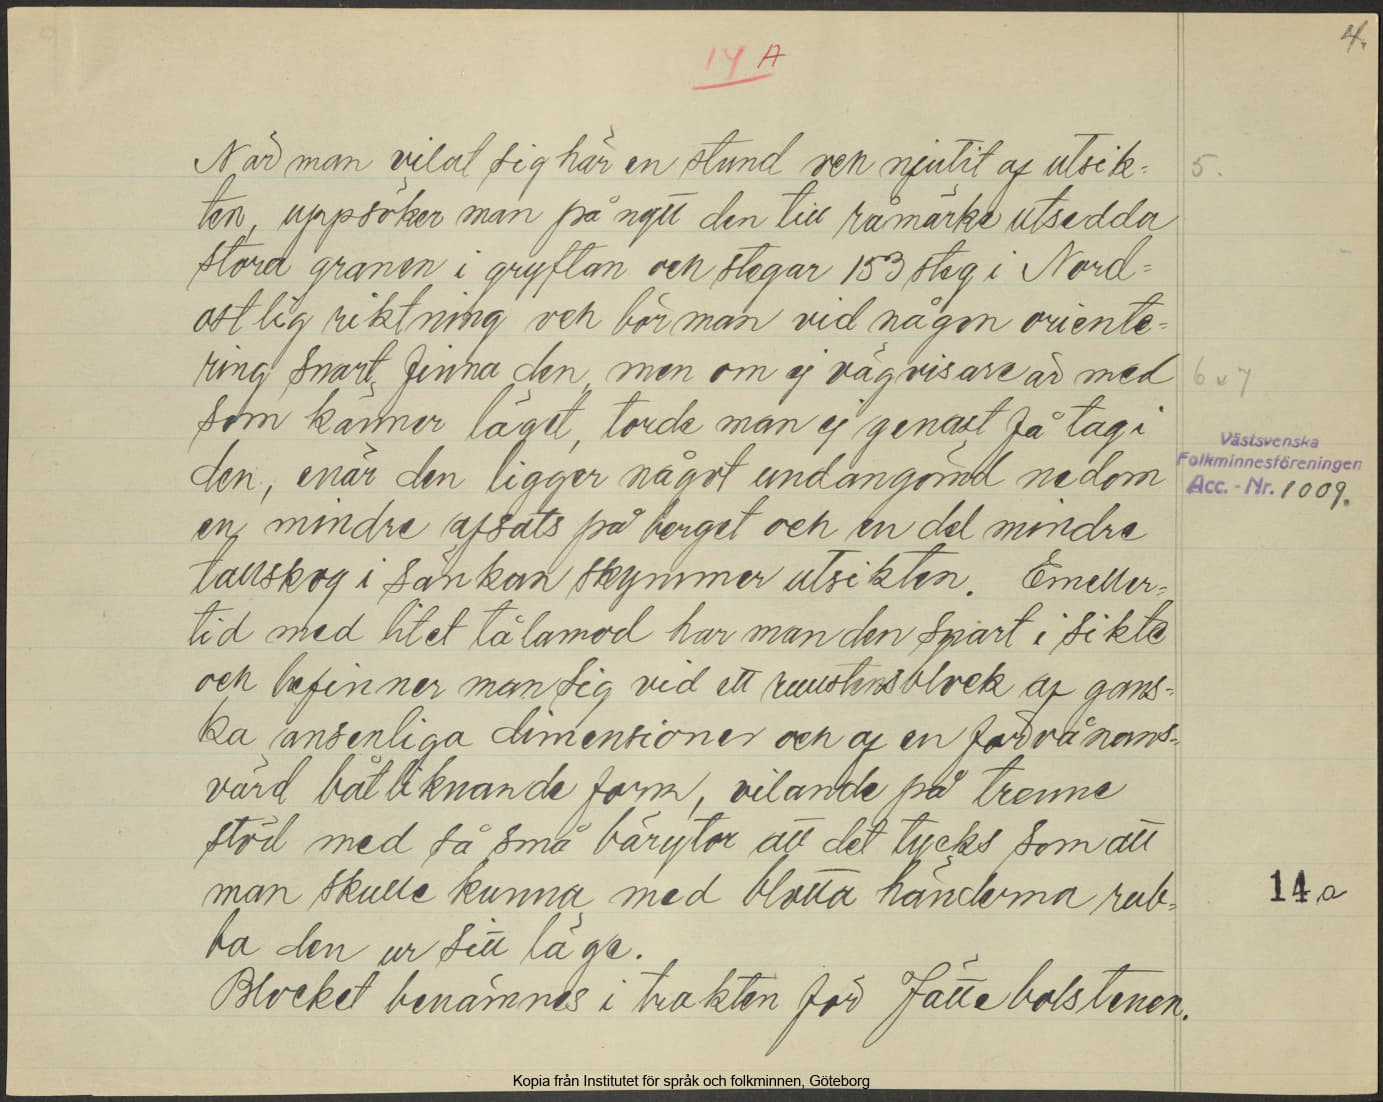 14 A
4.
När man vilat sig här en stund och njutit af utsik=
5.
ten, uppsöker man på nytt den till råmärke utsedda
stora granen i gryftan och stegar 153 steg i Nord=
ostlig riktning och bör man vid någon oriente=
ring snart finna den, men om ej vägvisare är med
6 o 7
som känner läget, torde man ej genast få tag i
Västsvenska
Folkminnesföreningen
Acc. - Nr. 1009.
den, enär den ligger något undangömd nedom
en mindre afsats på berget och en del mindre
tallskog i sänkan skymmer utsikten. Emeller=
tid med litet tålamod har man den snart i sikte
och befinner man sig vid ett rullstensblock af gans=
ka ansenliga dimensioner och af en förvånans=
värd båtliknande form, vilande på trenne
stöd med så små bärytor att det tycks som att
man skulle kunna med blotta händerna rub=
14 a
ba den ur sitt läge.
Blocket benämnes i trakten för Jättebolstenen.
Kopia från Institutet för språk och folkminnen, Göteborg